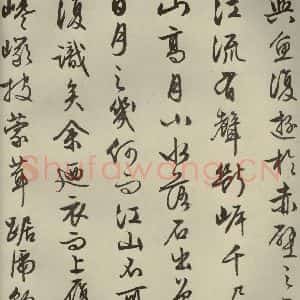 與魚復遊於赤壁之
江流有聲斷岸千尺
山高月小水落石出曾
日月之幾何而江山不可
復識矣余迺衣而上履
巉巖披蒙茸踞虎
Shufawang.CN